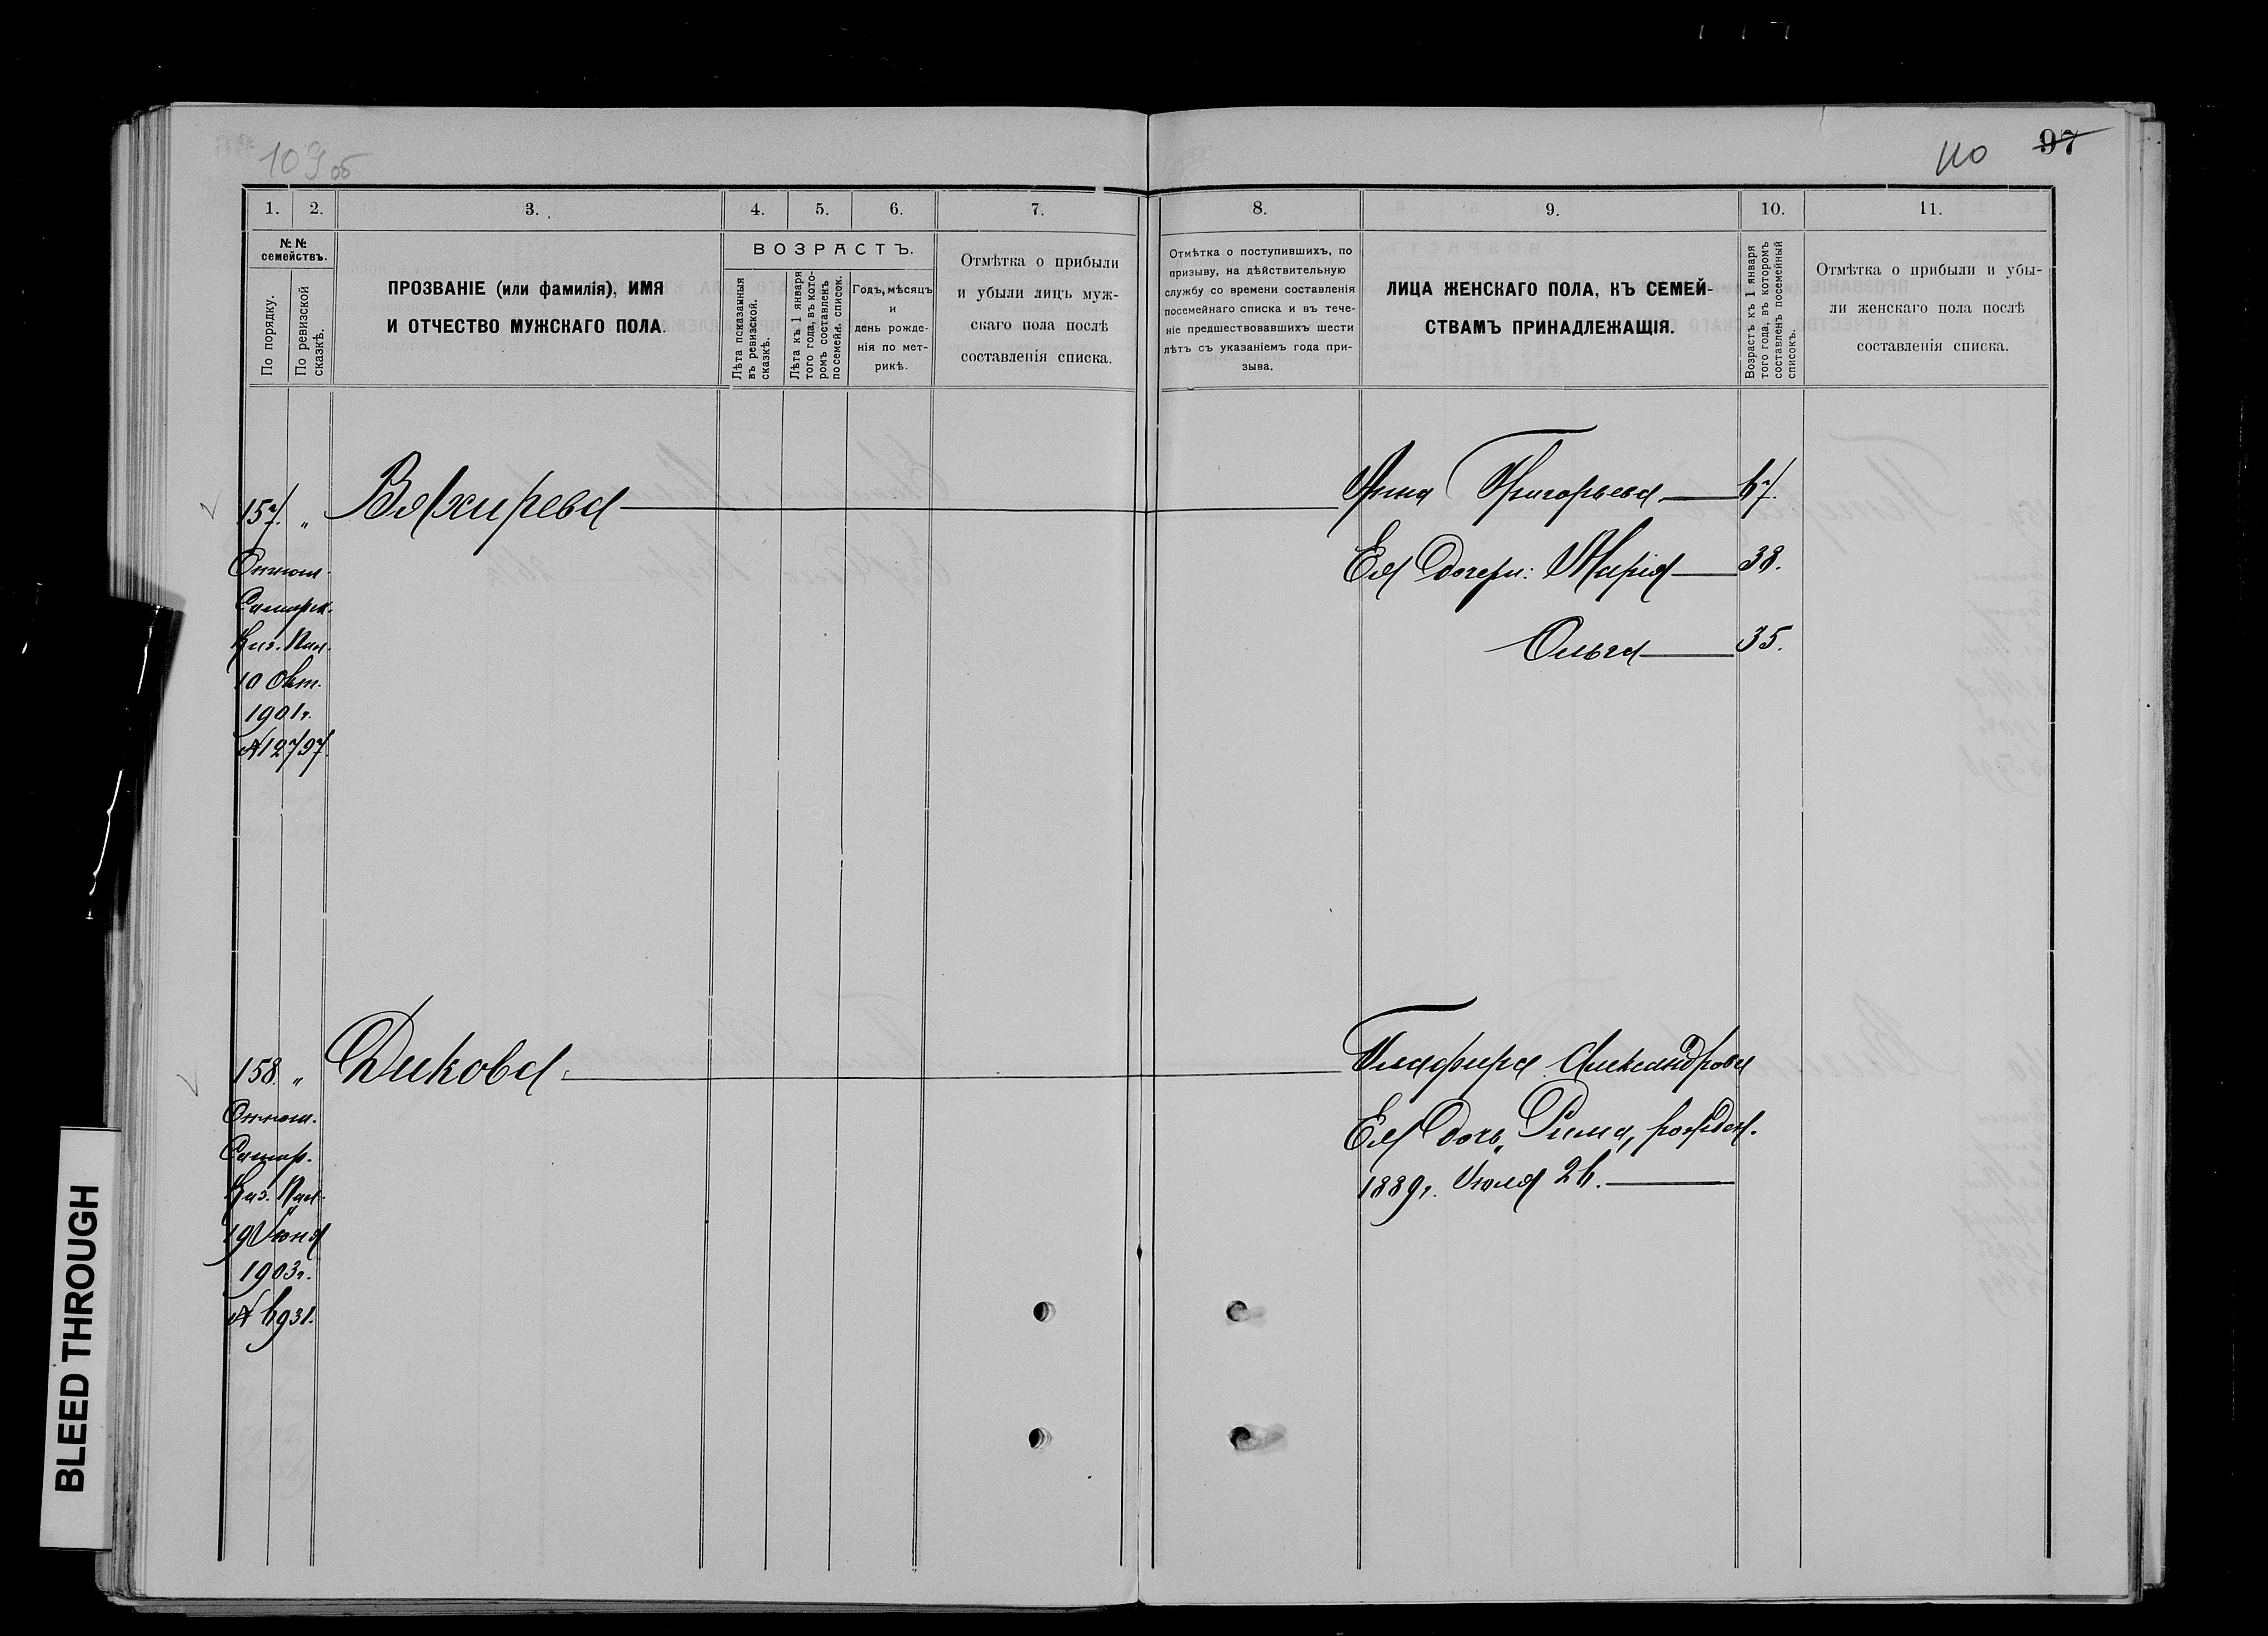 109 об
110 97
1. 2. 3. 4. 5. 6. 7. 8. 9. 10. 11.
№№ семействъ.
По порядку.
По ревизской сказкѣ.
ПРОЗВАНІЕ (или фамилія), ИМЯ
И ОТЧЕСТВО МУЖСКАГО ПОЛА.
ВОЗРАСТЪ.
Лѣта показанныя
въ ревизской.
сказкѣ.
Лѣта къ 1 января
того года, въ кото-
ромъ составленъ
посемейн. список.
Годъ, мѣсяцъ
и
день рожде-
нія по мет-
рикѣ.
Отмѣтка о прибыли
и убыли лицъ муж-
скаго пола послѣ
составленія списка.
Отмѣтка о поступившихъ, по
призыву, на дѣйствительную
службу со времени составленія
посемейнаго списка и въ тече-
ніе предшествовавшихъ шести
лѣтъ съ указаніемъ года при-
зыва.
ЛИЦА ЖЕНСКАГО ПОЛА, КЪ СЕМЕЙ-
СТВАМЪ ПРИНАДЛЕЖАЩІЯ.
Возрастъ къ 1 января
того года, въ которомъ
составленъ посемейный
списокъ.
Отмѣтка о прибыли и убы-
ли женскаго пола послѣ
составленія списка.
157. „ Вяхирева Анна Григорьева 67.
Отнош. Ея дочери: Марія 38.
Самарск. Ольга 35.
Каз. Пал.
10 Окт.
1901г.
№12797.
158. „ Дикова Глафира Александрова
Отнош. Ея дочь „Рима, рожден.
Самар. 1889г. Іюля 26.
Каз. Пал.
19 Іюня
1903г.
№ 6931.
BLEED THROUGH